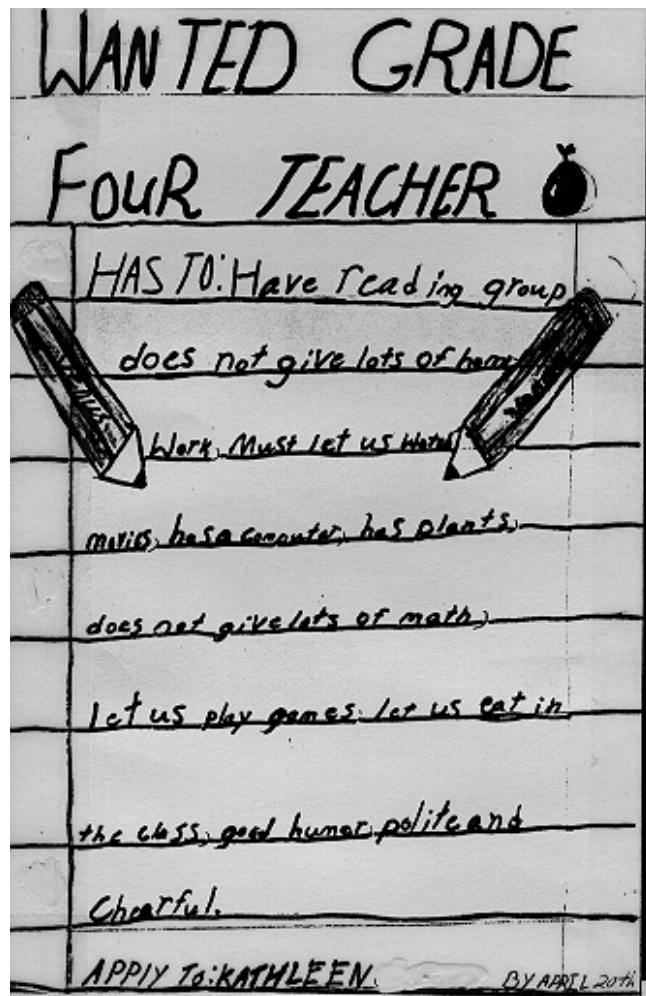 WANTED GRADE
FOUR TEACHER
HAS TO: Have reading group
does not give lots of home
Work, Must let us watch
movies, has a computer, has plants,
does not give lots of math,
let us play games. let us eat in
the class, good humor, polite and
Chearful.
APPLY TO: KATHLEEN.
BY APRIL 20th